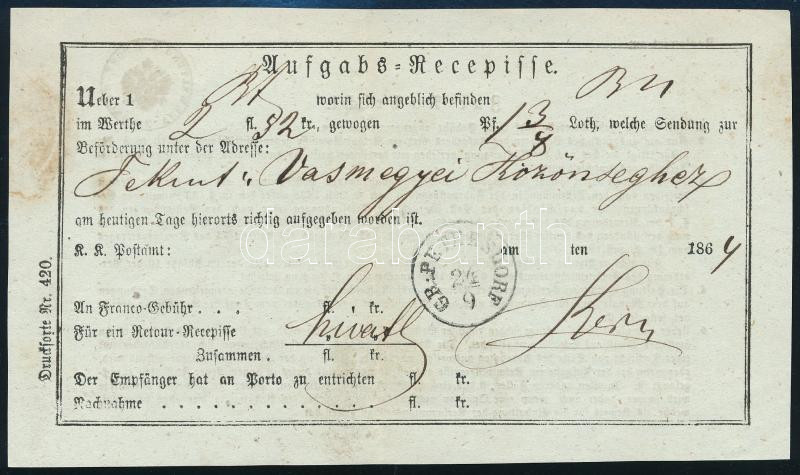 Aufgabs-Recepisse.
Ueber 1 worin sich angeblich befinden
im Werthe 2 fl. 52 kr., gewogen Pf. 1 3/4 Loth, welche Sendung zur
Beförderung unter der Adresse:
Tekint: Vasmegyei Közönseghez
am heutigen Tage hierorts richtig aufgegeben worden ist.
K. K. Postamt: am ten 1864
GR: PETERSDORF
An Franco-Gebühr . . . fl. kr.
Für ein Retour-Recepisse
Zusammen . fl. kr.
Der Empfänger hat an Porto zu entrichten fl. kr.
Nachnahme . . . . . . . . . . . fl. kr.
Drucksorte Nr. 420.
darabanth